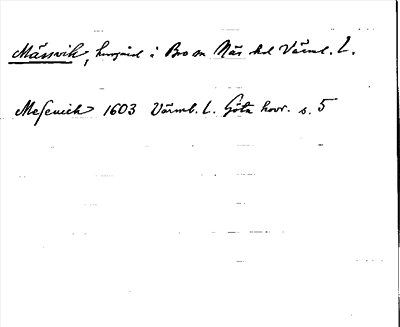 Mässvik, herrgård i Bro sn Näs hd Värml. L.
Mesewich 1603 Värml. L. Göta hovr. s. 5